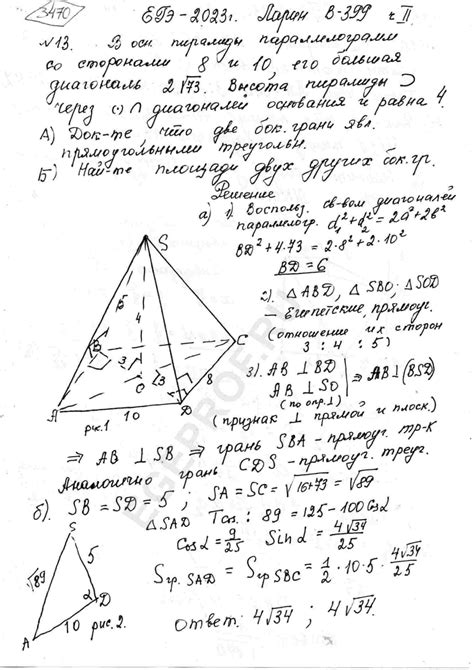 3470
ЕГЭ-2023г. Ларин В-399 ч II
№13. В осн. пирамиды параллелограмм
со сторонами 8 и 10, его большая
диагональ 2√73. Высота пирамиды ⊃
через (·) ∩ диагоналей основания и равна 4.
А) Док-те, что две бок. грани явл.
прямоугольными треугольн.
Б) Най-те площади двух других бок. гр.
Решение
а) 1) Воспольз. св-вом диагоналей
параллелогр. d₁²+d₂²=2a²+2b²
BD²+4·73=2·8²+2·10²
BD=6
2) △ABD, △SBO, △SOD
– Египетские прямоуг.
(отношение их сторон
3:4:5)
3) AB ⊥ BD
AB ⊥ SO
(по опр.⊥)
⇒ AB⊥(BSD)
(признак ⊥ прямой и плоск.)
S
5
4
B
C
3
O
3
8
A
10
D
рис.1
⇒ AB ⊥ SB ⇒ грань SBA – прямоуг. тр-к
Аналогично грань CDS – прямоуг. треуг.
б) SB = SD = 5; SA = SC = √16+73 = √89
△SAD Tcos: 89 = 125 – 100 Cosα
Cosα = 9/25 Sinα = 4√34/25
Sгр. SAD = Sгр SBC = 1/2·10·5·4√34/25
Ответ: 4√34; 4√34.
S
√89
5
α
D
A
10
рис.2.
EGEPROF.RU